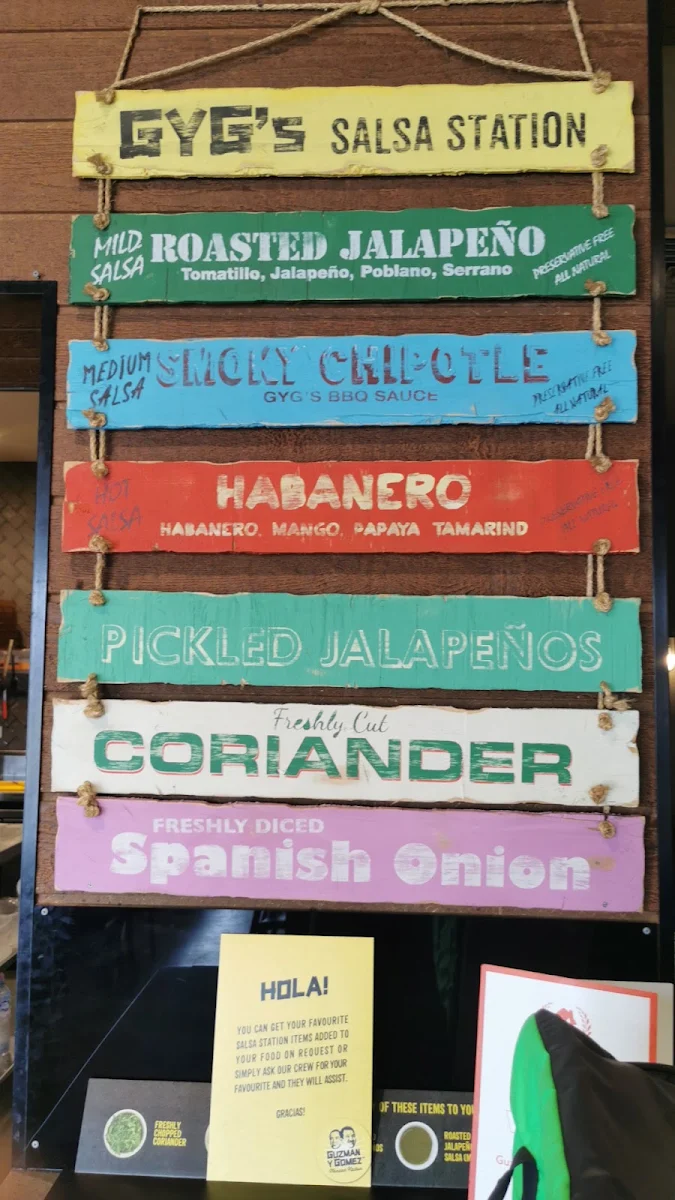 GYG's SALSA STATION
MILD SALSA
ROASTED JALAPEÑO
Tomatillo, Jalapeño, Poblano, Serrano
PRESERVATIVE FREE
ALL NATURAL
MEDIUM SALSA
SMOKY CHIPOTLE
GYG'S BBQ SAUCE
PRESERVATIVE FREE
ALL NATURAL
HOT SALSA
HABANERO
HABANERO, MANGO, PAPAYA TAMARIND
PRESERVATIVE FREE
ALL NATURAL
PICKLED JALAPEÑOS
Freshly Cut
CORIANDER
FRESHLY DICED
Spanish Onion
HOLA!
YOU CAN GET YOUR FAVOURITE
SALSA STATION ITEMS ADDED TO
YOUR FOOD ON REQUEST OR
SIMPLY ASK OUR CREW FOR YOUR
FAVOURITE AND THEY WILL ASSIST.
GRACIAS!
GUZMAN
Y GOMEZ
FRESHLY
CHOPPED
CORIANDER
OF THESE ITEMS TO YOU
ROASTED
JALAPEÑO
SALSA